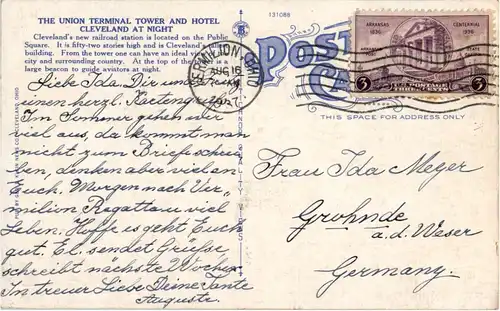 THE UNION TERMINAL TOWER AND HOTEL
CLEVELAND AT NIGHT
Cleveland's new railroad station is located on the Public
Square. It is fifty-two stories high and is Cleveland's
building. From the tower one can have an ideal view
city and surrounding country. At the top of the is a
large beacon to guide aviators at night.
131088
Liebe Ida. Dir und
einen herzl. Kartengruß
Im Sommer gehen wir
viel aus, da kommt man
nicht zum Briefe schrei-
ben, denken aber viel an
Euch. Morgen nach Ver-
milion Regatta u viel
Leben. Hoffe es geht Euch
gut. El. sendet Grüsse
schreibt nächste Woche
In treuer Liebe Deine Tante
Auguste.
VERMILION, OHIO
AUG 16
1937
POST
CA
THIS SPACE FOR ADDRESS ONLY
ARKANSAS
1836
CENTENNIAL
1936
U.S. POSTAGE
THREE CENTS
3
3
Frau Ida Meyer
Grohnde
a.d. Weser
Germany.